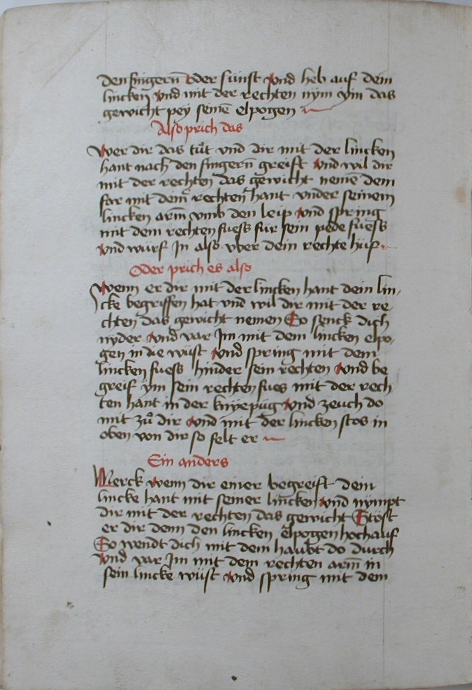 den fingern̄ oder sünst vnd heb auf dem
lincken̄ vnd mit der rechten nym ym das
gewicht pey seinē elpogen
Also prich das
Wer dir das tüt vnd dir mit der lincken
hant nach den fingern̄ greift vnd wil dir
mit der rechten das gewicht nemē dem
far mit dem̄ rechten hant vnder seinem
lincken arm vmb den leip vnd spring
mit dem rechten fuess für sein pede fuess
vnd würf In also vber dein rechte huf
Oder prich es also
Wenn er dir mit der lincken hant dein lin/
cke begriffen hat vnd wil dir mit der re
chten das gewicht nemen So senck dich
nyder vnd var Im mit dem lincken elpo/
gen in die wüst vnd spring mit dem
lincken fuess hinder sein rechten vnd be
greif ym sein rechten fues mit der rech
ten hant in der knyepüg vnd zeuch do
mit zů dir vnd mit der lincken stos in
oben von dir so felt er
Ein anders
Merck wenn dir einer begreift dein
lincke hant mit seiner lincken̄ vnd nympt
dir mit der rechten das gewicht Stöst
er dir denn den lincken elpogen hoch auf
So wendt dich mit dem haubt do durch
vnd var Im mit dem rechten arm̄ in
sein lincke wüst vnd spring mit dem